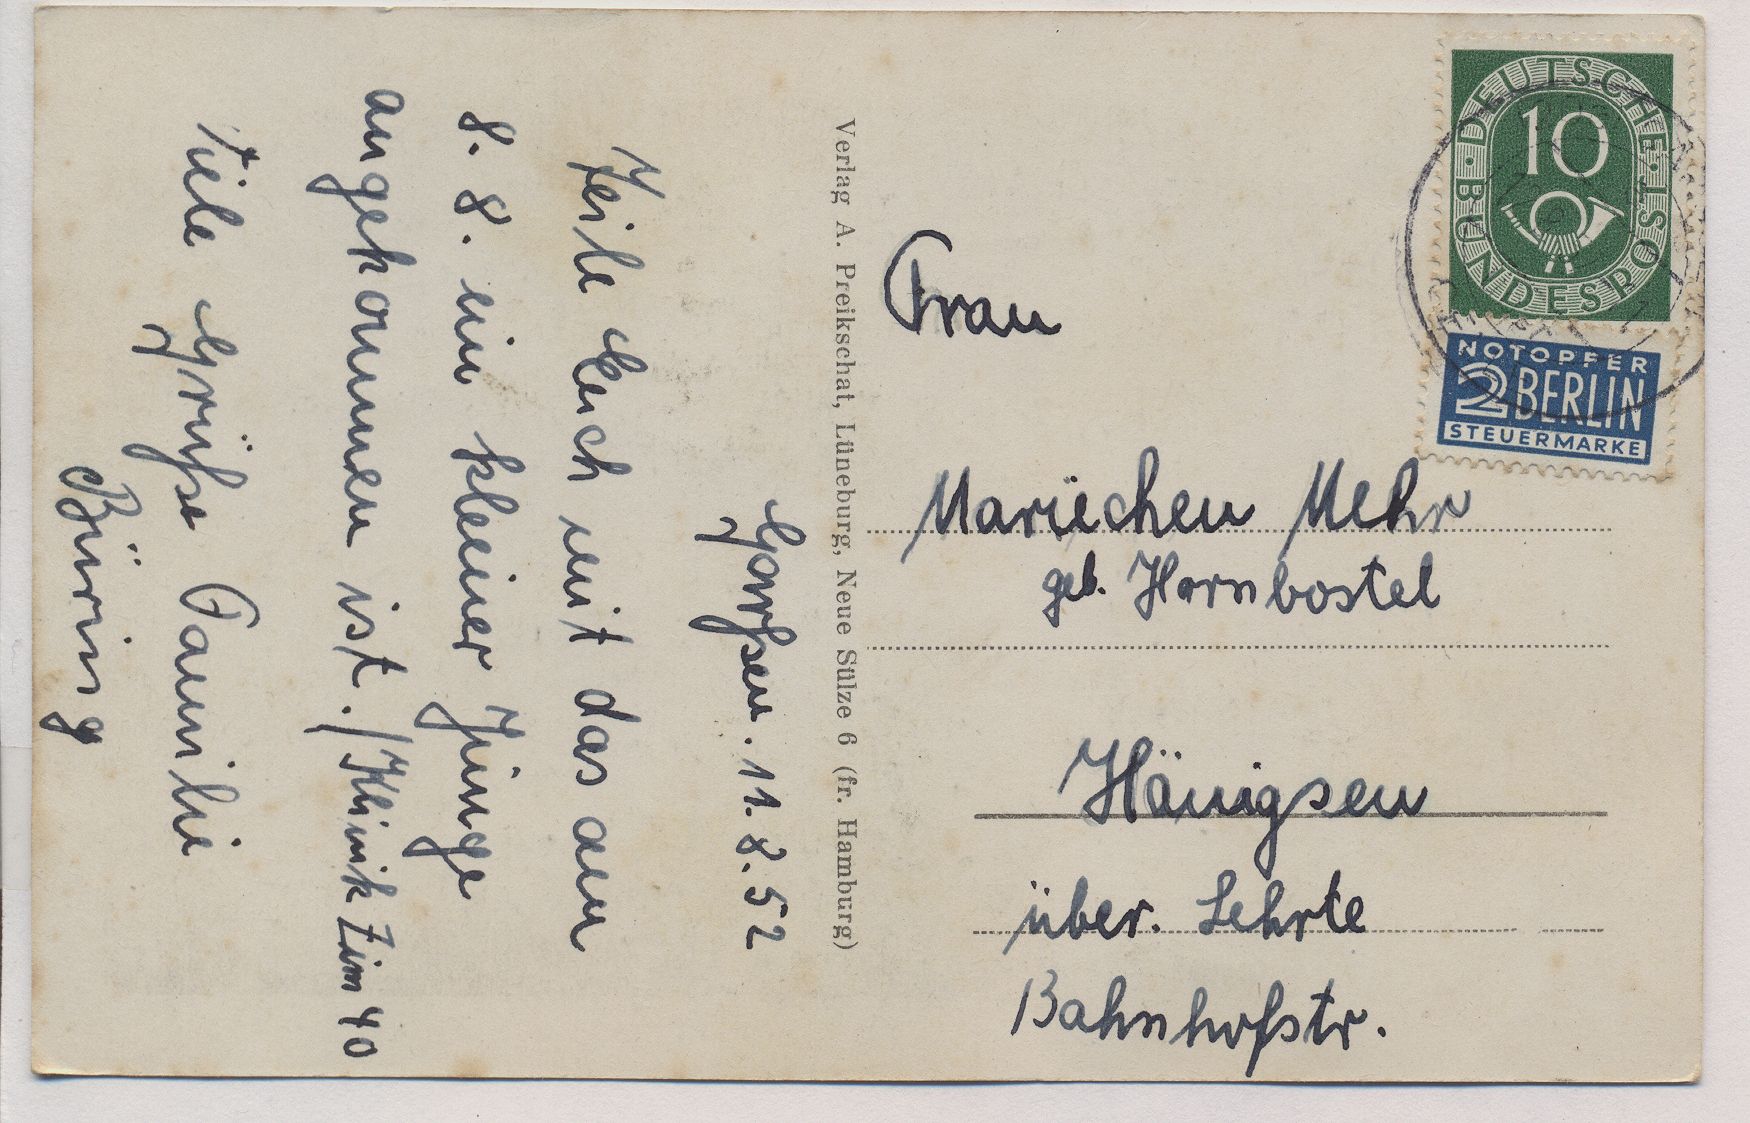 Garßen. 11.8.52
Teile Euch mit das am
8. 8. ein kleiner Junge
angekommen ist./Klinik Zim 40
Viele Grüße Familie
Büring
Verlag A. Preikschat, Lüneburg, Neue Sülze 6 (fr. Hamburg)
DEUTSCHE BUNDESPOST
10
NOTOPFER
2 BERLIN
STEUERMARKE
Frau
Mariechen Mehr
geb. Hornbostel
Hänigsen
über. Lehrte
Bahnhofstr.